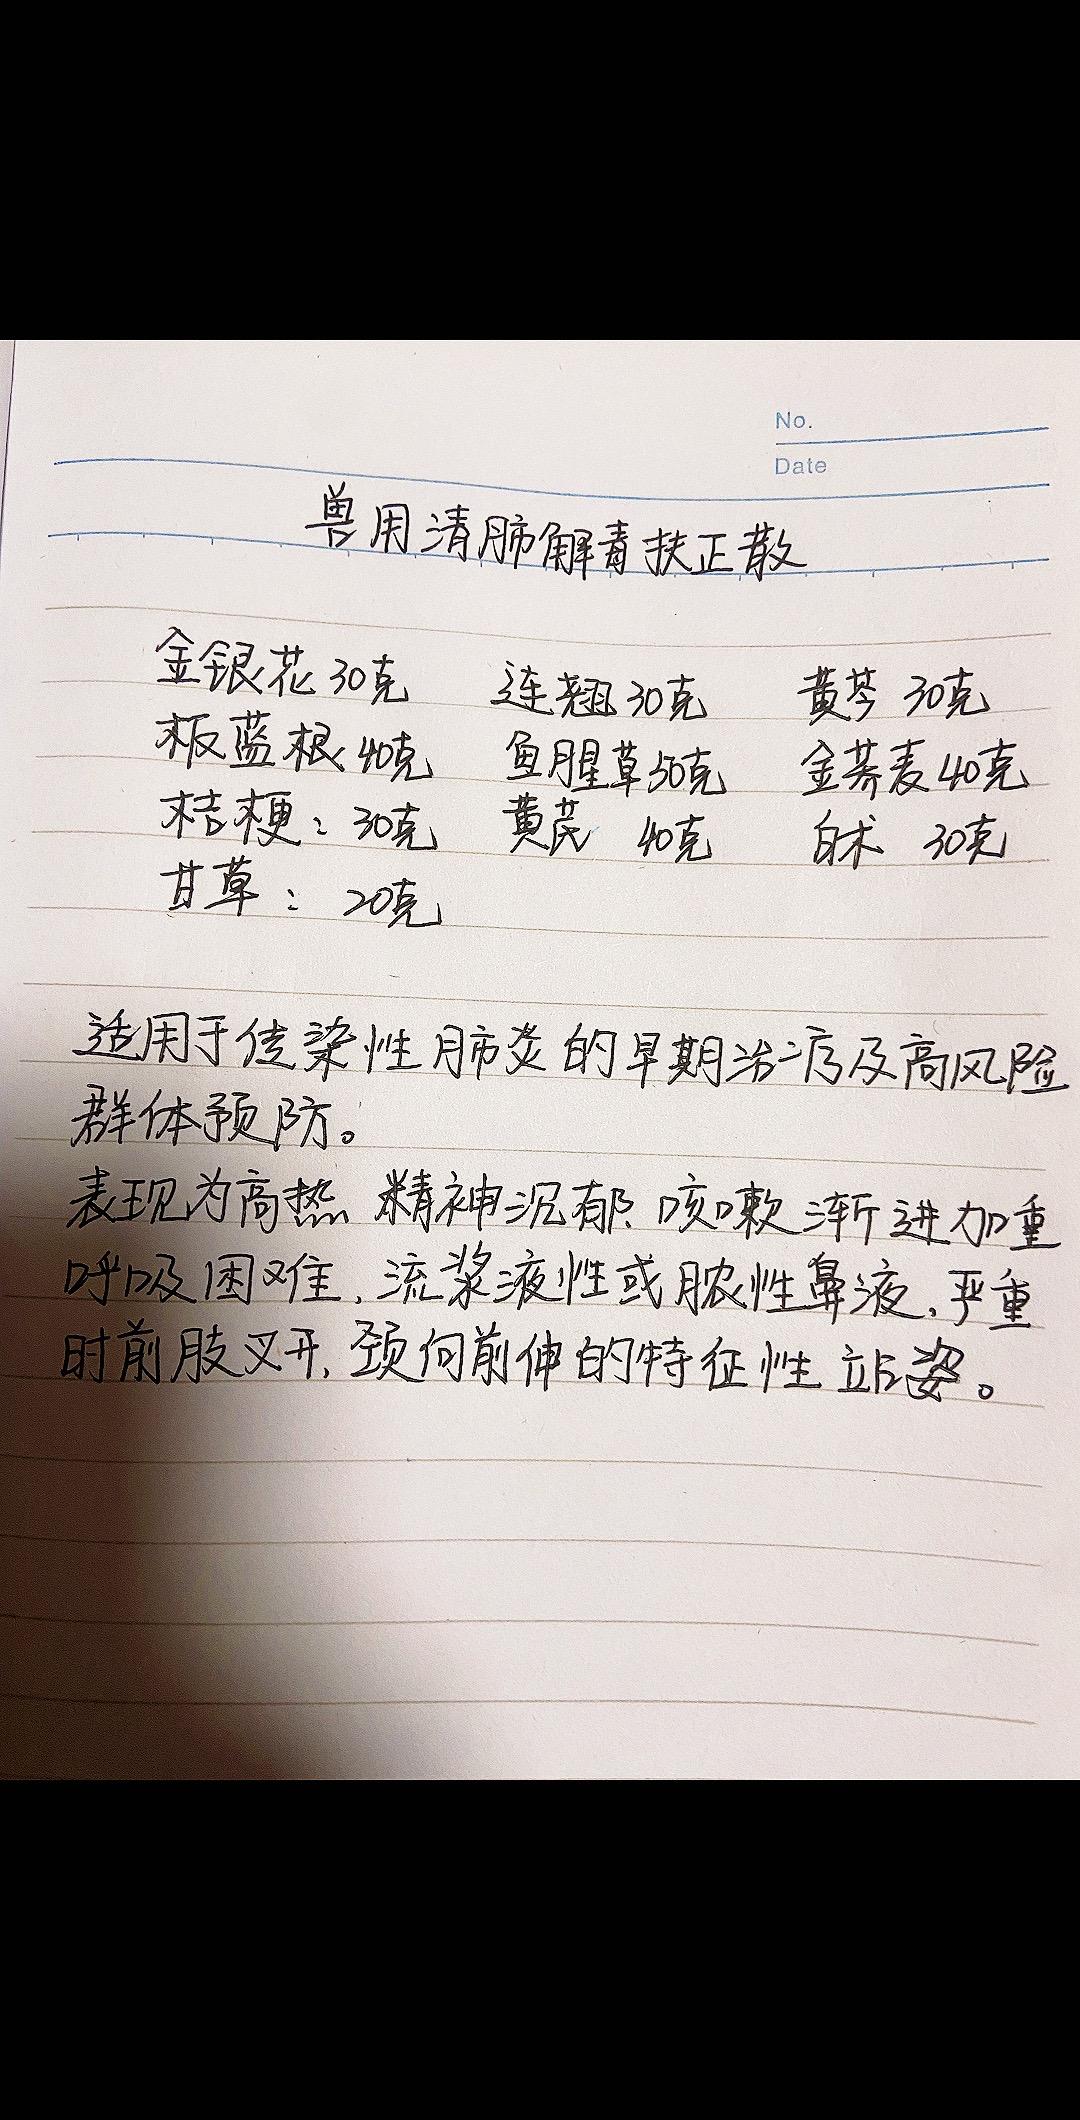 No.
Date
兽用清肺解毒扶正散
金银花30克 连翘30克 黄芩30克
板蓝根40克 鱼腥草50克 金荞麦40克
桔梗:30克 黄芪 40克 白术 30克
甘草: 20克
适用于传染性肺炎的早期治疗及高风险
群体预防。
表现为高热 精神沉郁、咳嗽渐进加重
呼吸困难,流浆液性或脓性鼻液,严重
时前肢叉开,颈向前伸的特征性站姿。